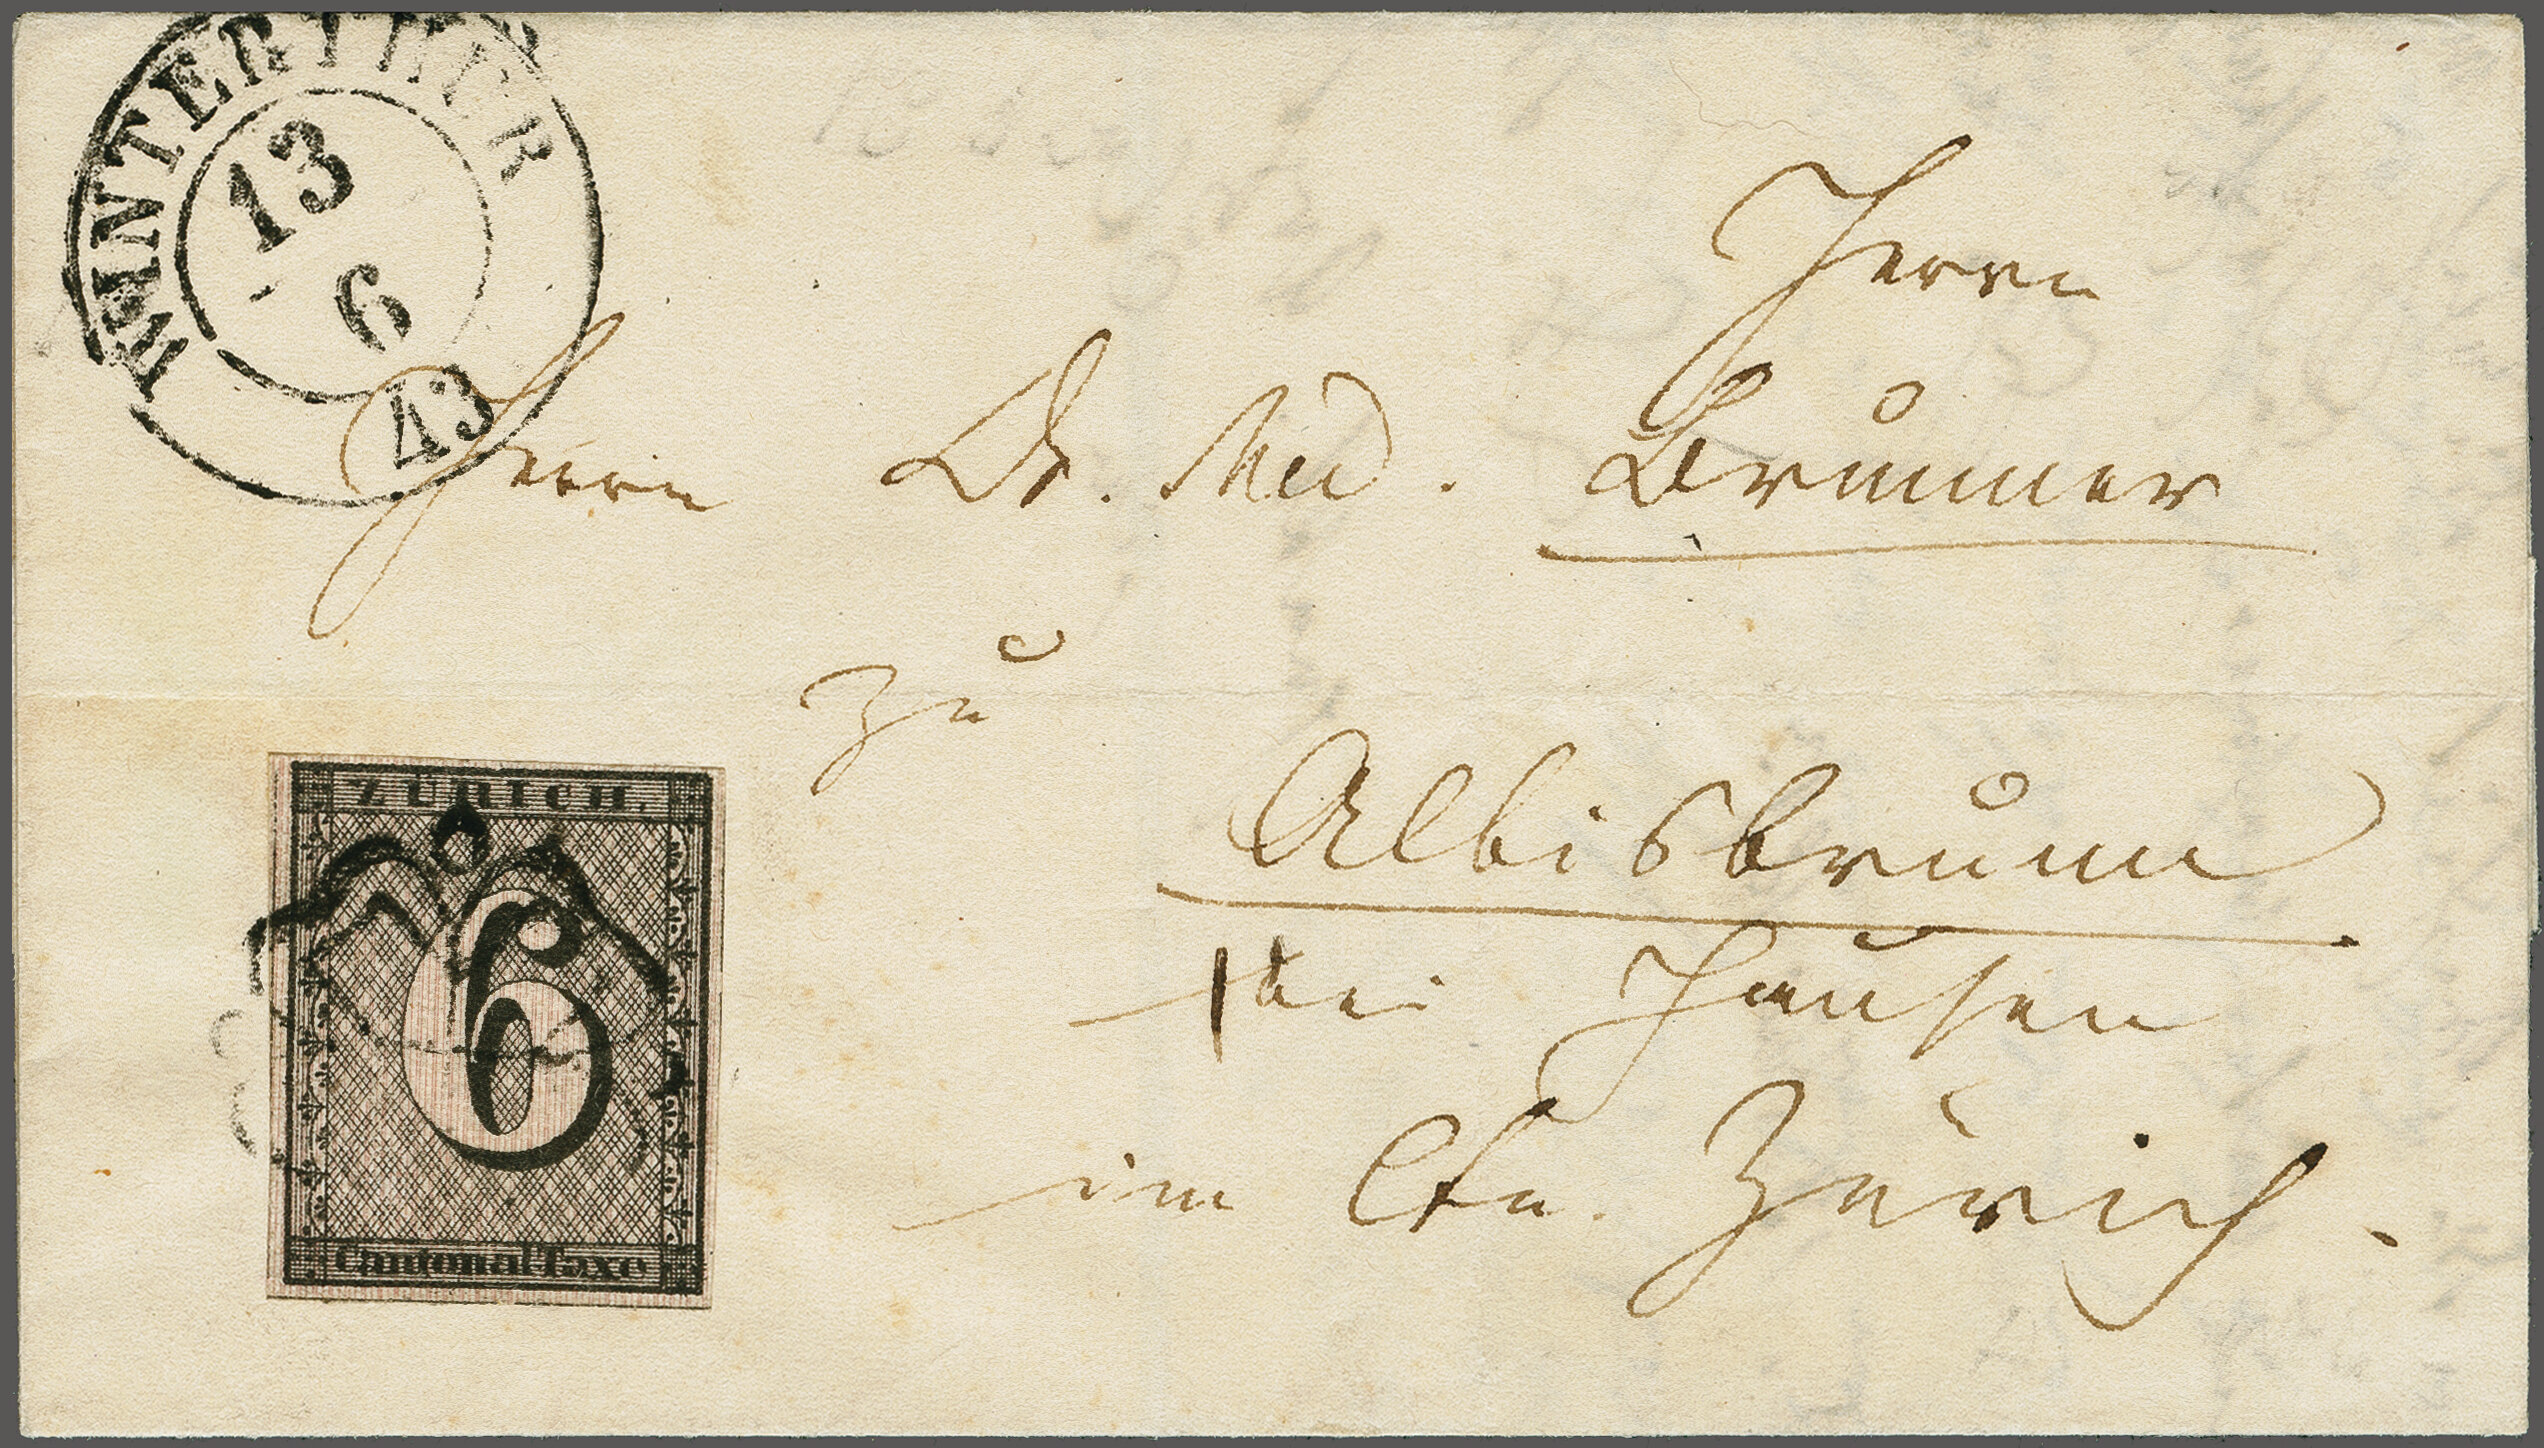 WINTERTHUR
13
6
43
Herrn
Herrn Dr. Med. Brunner
zu
Albisbrunn
bei Hausen
im Ctn. Zürich.
ZÜRICH.
6
Cantonal-Taxe